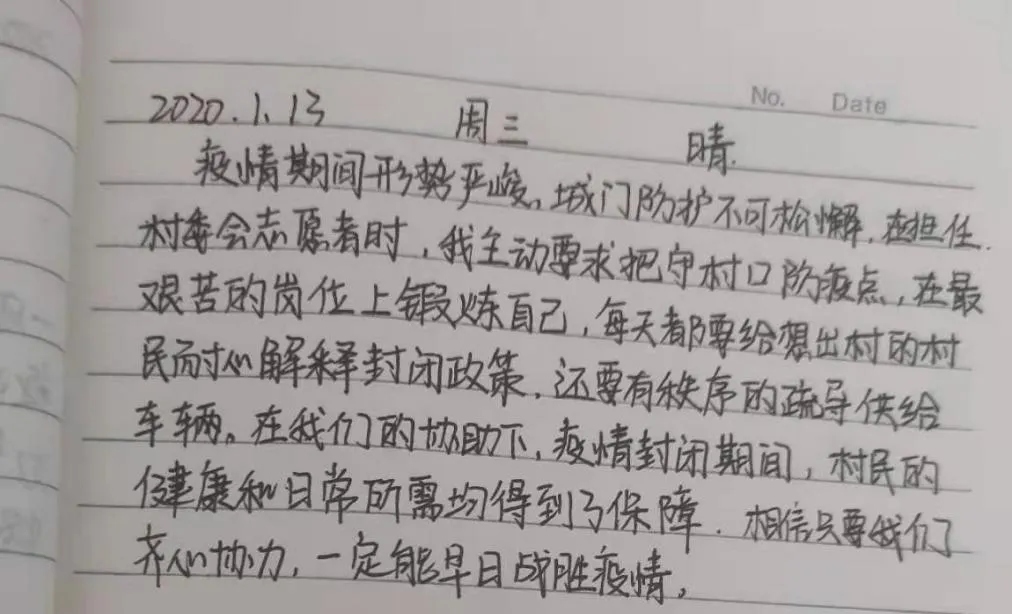 No. Date
2020.1.13 周三 晴.
疫情期间形势严峻,城门防护不可松懈.在担任.
村委会志愿者时,我主动要求把守村口防疫点,在最
艰苦的岗位上锻炼自己,每天都要给想出村的村
民耐心解释封闭政策,还要有秩序的疏导供给
车辆。在我们的协助下,疫情封闭期间,村民的
健康和日常所需均得到了保障.相信只要我们
齐心协力,一定能早日战胜疫情。